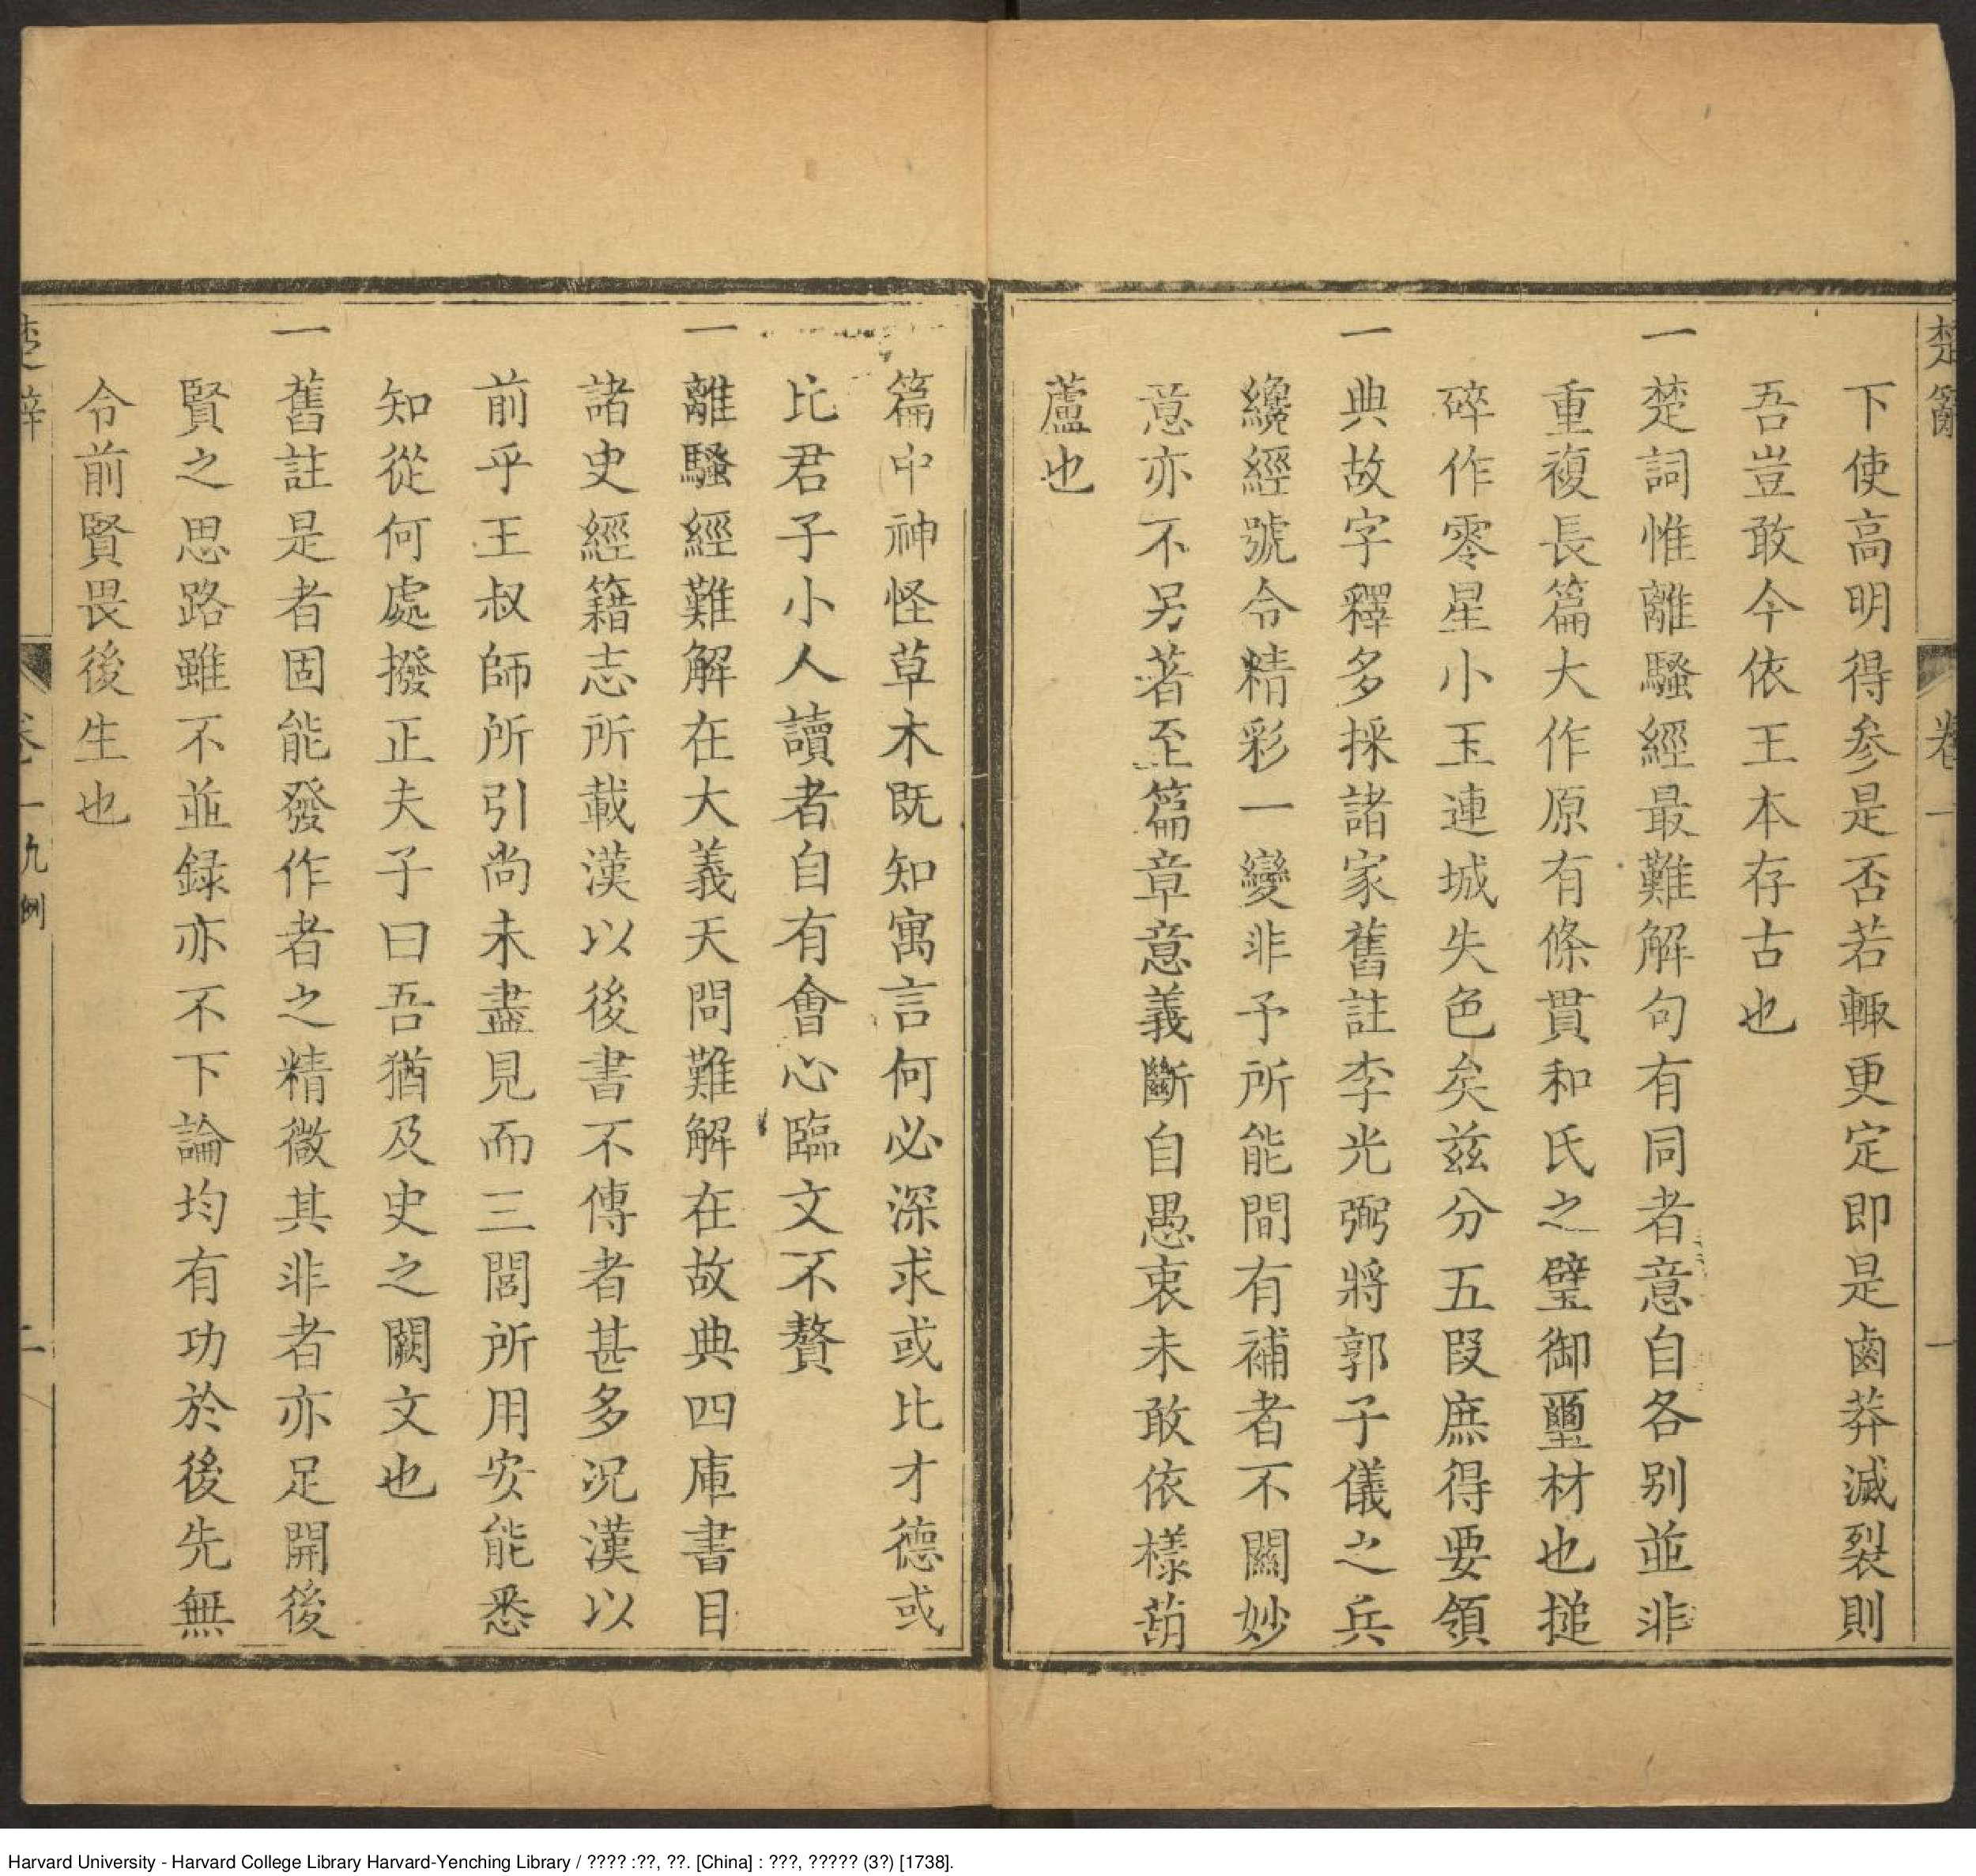 下使高明得參是否若輙更定即是鹵莽滅裂則
吾豈敢今依王本存古也
一楚詞惟離騷經最難解句有同者意自各别並非
重複長篇大作原有條貫和氏之璧御璽材也搥
碎作零星小玉連城失色矣兹分五段庶得要領
一典故字釋多採諸家舊註李光弼將郭子儀之兵
纔經號令精彩一變非予所能間有補者不關妙
意亦不另著至篇章意義斷自愚衷未敢依樣葫
蘆也
篇中神怪草木既知寓言何必深求或比才德或
比君子小人讀者自有會心臨文不贅
一離騷經難解在大義天問難解在故典四庫書目
諸史經籍志所載漢以後書不傳者甚多况漢以
前乎王叔師所引尚未盡見而三閭所用安能悉
知從何處撥正夫子曰吾猶及史之闕文也
一舊註是者固能發作者之精微其非者亦足開後
賢之思路雖不並録亦不下論均有功於後先無
令前賢畏後生也
楚辭 卷一凡例 二
Harvard University - Harvard College Library Harvard-Yenching Library / ???? :??, ??. [China] : ???, ????? (3?) [1738].